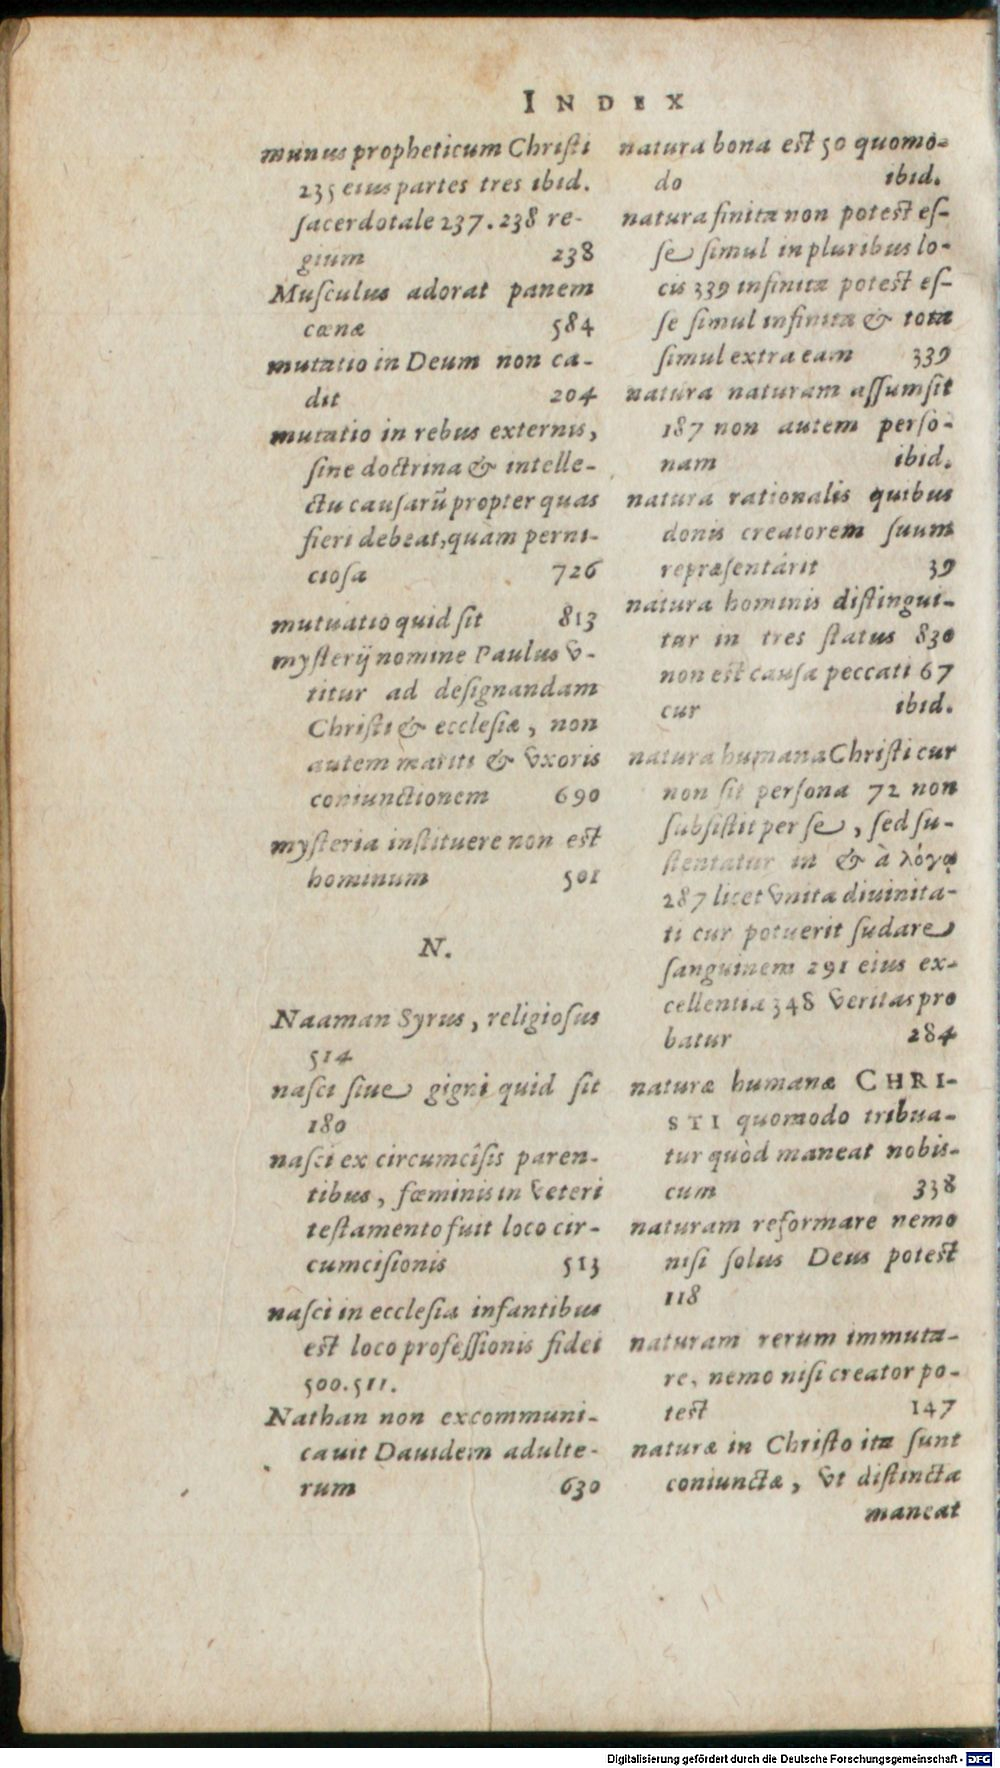 INDEX
munus propheticum Christi
235 eius partes tres ibid.
sacerdotale 237.238 re-
gium 238
Musculus adorat panem
cœnæ 584
mutatio in Deum non ca-
dit 204
mutatio in rebus externis,
sine doctrina & intelle-
ctu causarũ propter quas
fieri debeat, quàm perni-
ciosa 726
mutuatio quid sit 813
mysterij nomine Paulus v-
titur ad designandam
Christi & ecclesiæ, non
autem mariti & vxoris
coniunctionem 690
mysteria instituere non est
hominum 501
N.
Naaman Syrus, religiosus
514
nasci siue gigni quid sit
180
nasci ex circumcîsis paren-
tibus, fœminis in veteri
testamento fuit loco cir-
cumcisionis 513
nasci in ecclesia infantibus
est loco professionis fidei
500.511.
Nathan non excommuni-
cauit Dauidem adulte-
rum 630
natura bona est 50 quomo-
do ibid.
natura finita non potest es-
se simul in pluribus lo-
cis 339 infinita potest es-
se simul infinita & tota
simul extra eam 339
natura naturam assumsit
187 non autem perso-
nam ibid.
natura rationalis quibus
donis creatorem suum
repræsentárit 39
natura hominis distingui-
tur in tres status 830
non est causa peccati 67
cur ibid.
natura humana Christi cur
non sit persona 72 non
subsistit per se, sed su-
stentatur in & à λόγῳ
287 licet vnita diuinita-
ti cur potuerit sudare
sanguinem 291 eius ex-
cellentia 348 veritas pro
batur 284
naturæ humanæ CHRI-
STI quomodo tribua-
tur quòd maneat nobis-
cum 338
naturam reformare nemo
nisi solus Deus potest
118
naturam rerum immuta-
re, nemo nisi creator po-
test 147
naturæ in Christo ita sunt
coniunctæ, vt distincta
maneat
Digitalisierung gefördert durch die Deutsche Forschungsgemeinschaft - DFG